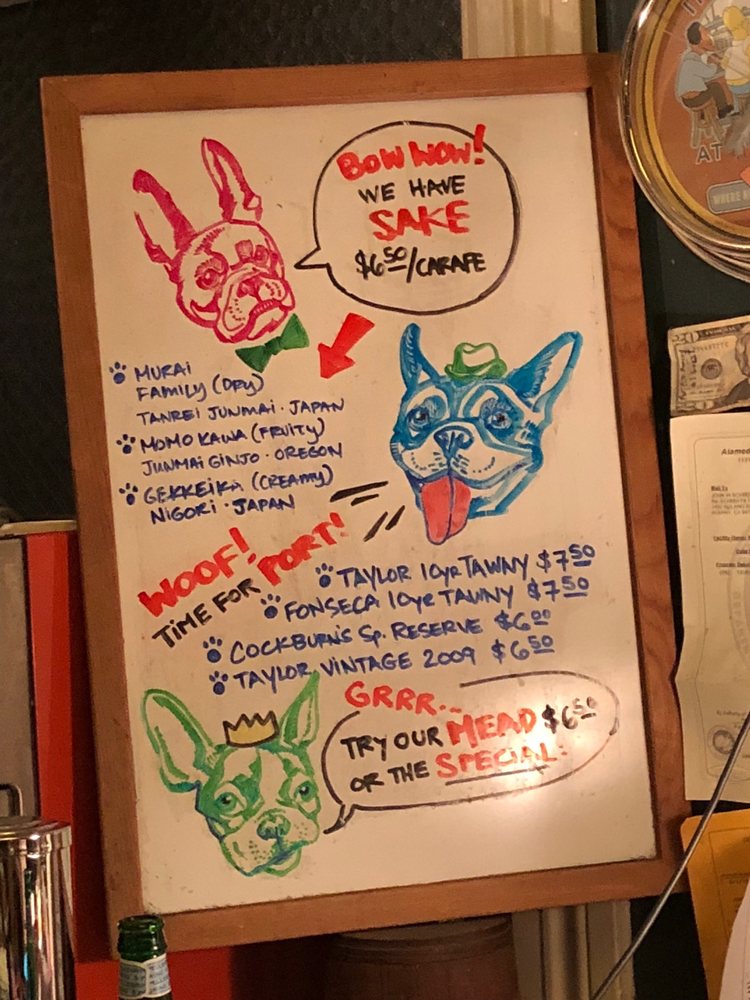 BOW WOW!
WE HAVE
SAKE
$6.50/CARAFE
MURAI
FAMILY (DRY)
TANREI JUNMAI · JAPAN
MOMOKAWA (FRUITY)
JUNMAI GINJO · OREGON
(CREAMY)
NIGORI · JAPAN
WOOF!
TIME FOR PORT!
TAYLOR 10yr TAWNY $7.50
FONSECA 10yr TAWNY $7.50
COCKBURN'S Sp. RESERVE $6.00
TAYLOR VINTAGE 2009 $6.50
GRRR...
TRY OUR MEAD $6.50
OR THE SPECIAL.
AT
WHERE
Alamed